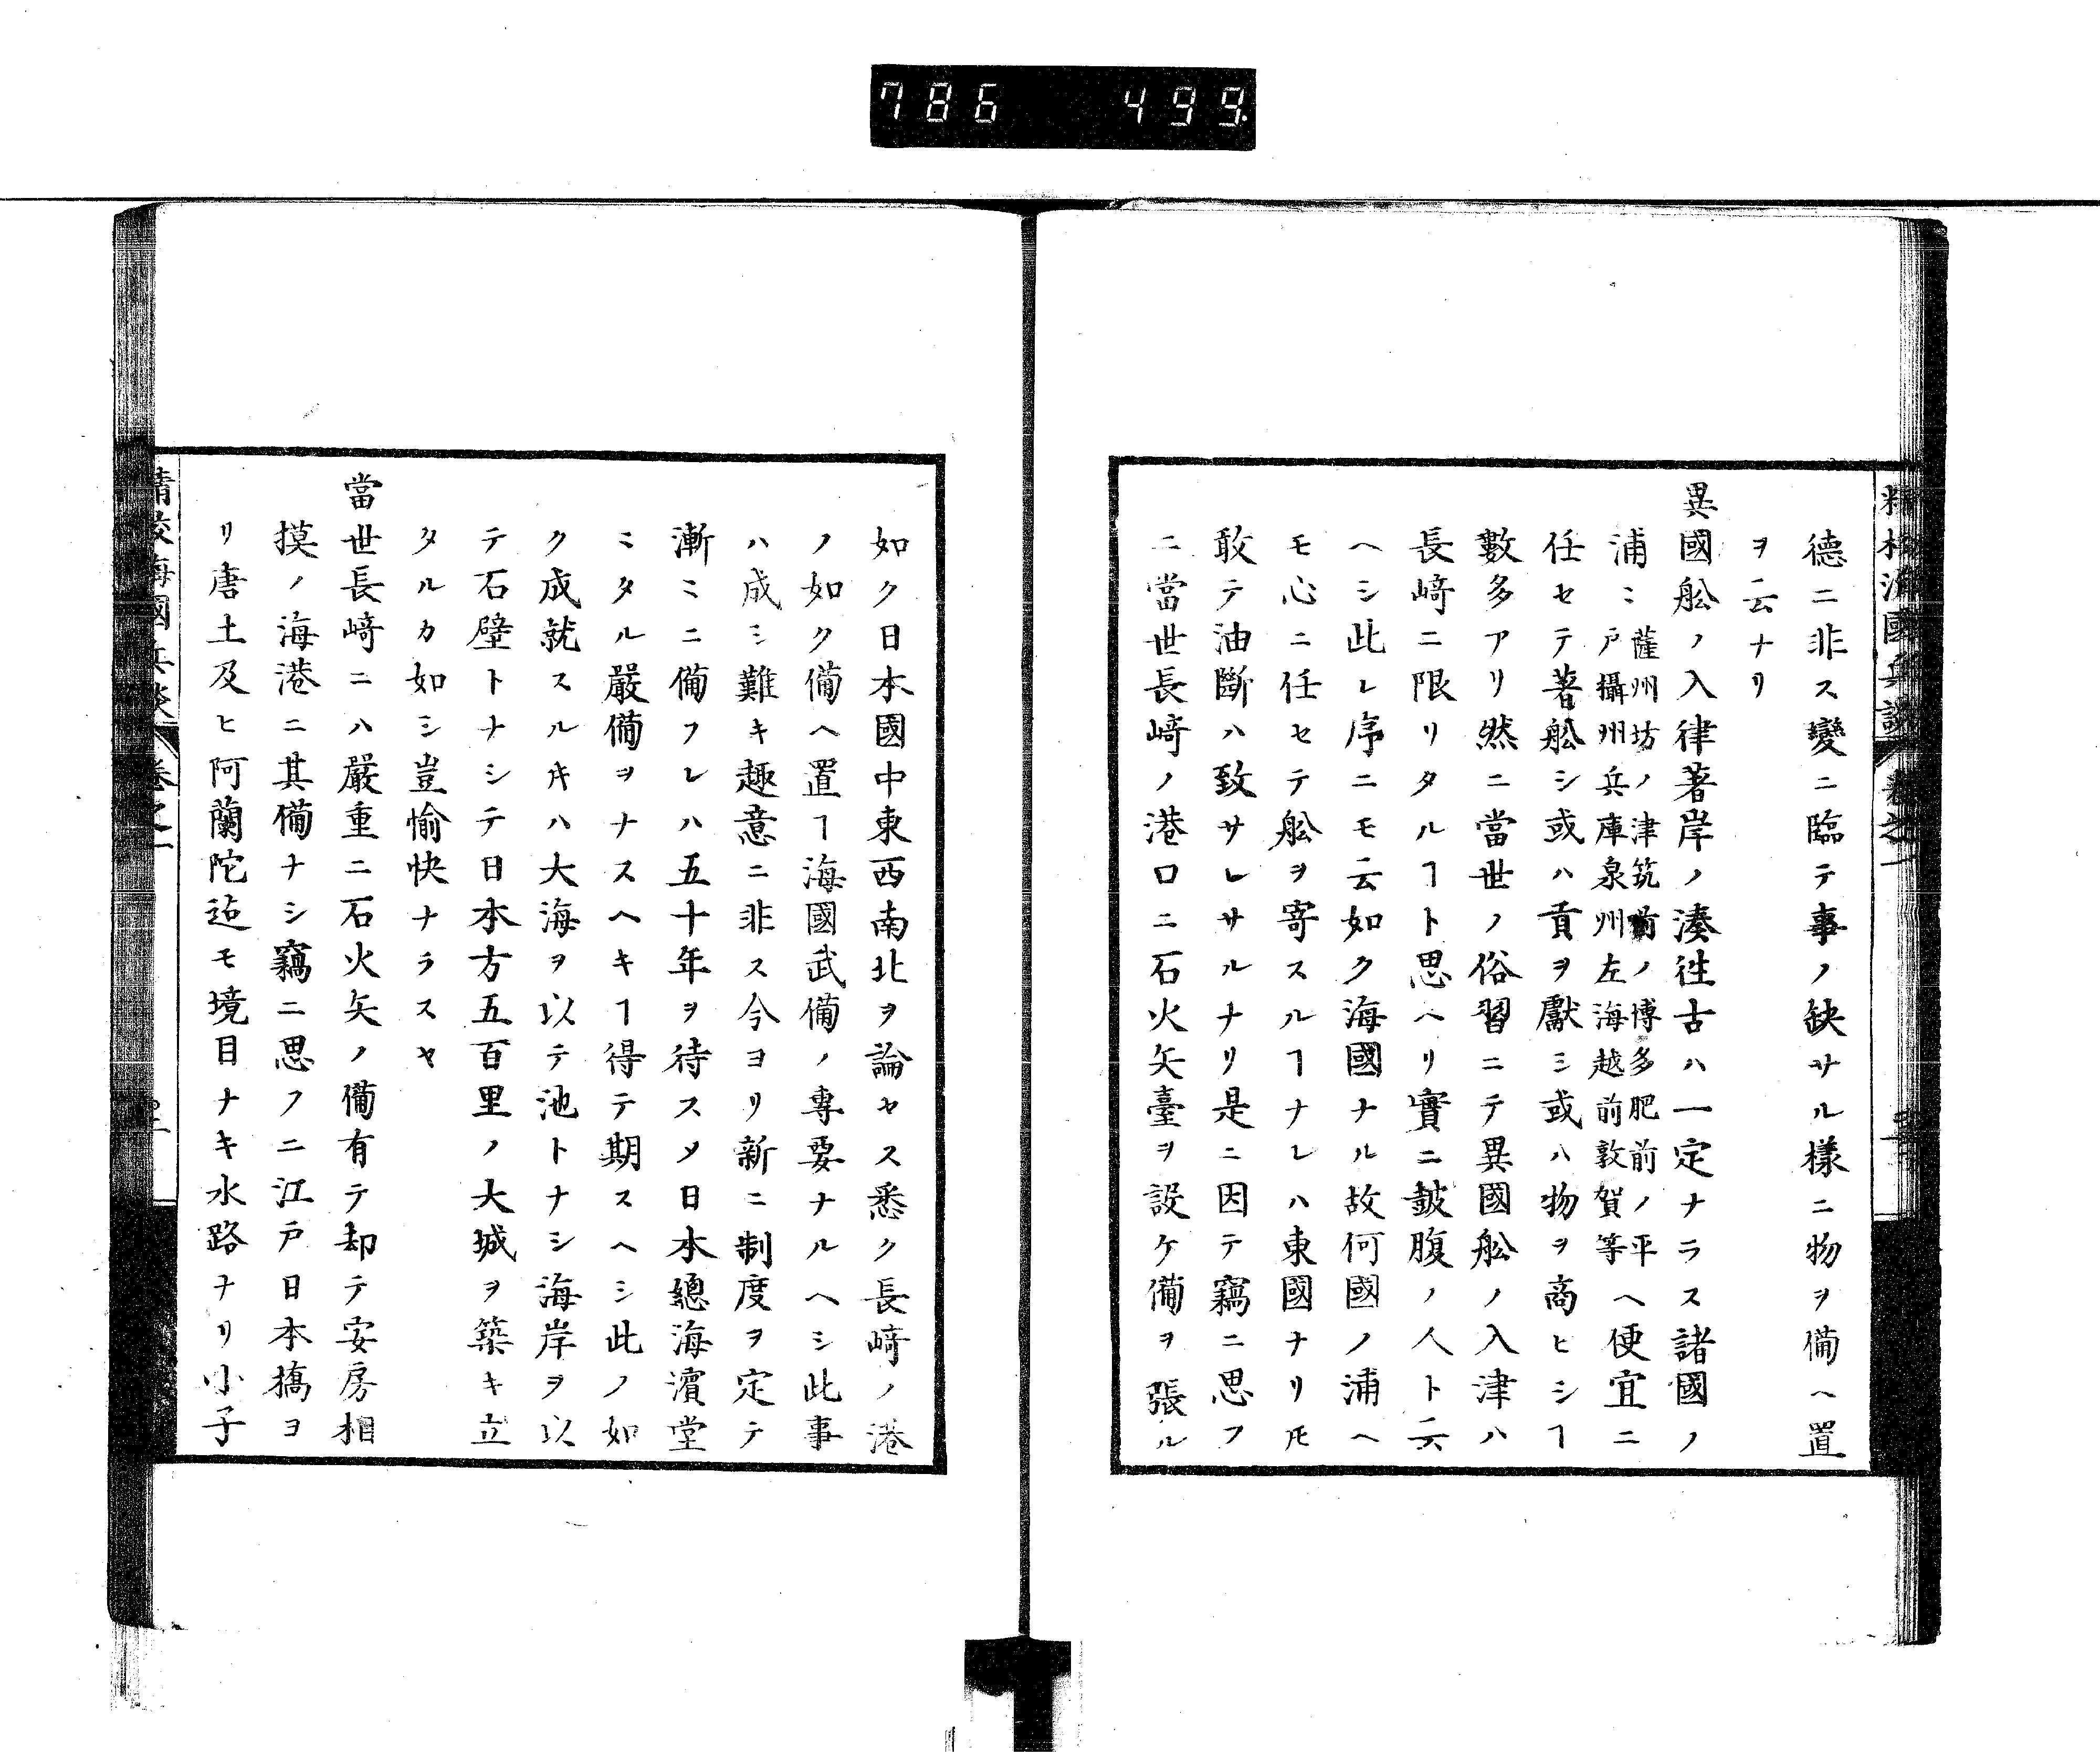 786 499
精校海國兵談 卷之一
徳ニ非ス變ニ臨テ事ノ缺サル樣ニ物ヲ備ヘ置
ヲ云ナリ
異國舩ノ入律著岸ノ湊徃古ハ一定ナラス諸國ノ
浦ミ薩州坊ノ津筑前ノ博多肥前ノ平
戸攝州兵庫泉州左海越前敦賀等ヘ便宜ニ
任セテ著舩シ或ハ貢ヲ獻ミ或ハ物ヲ商ヒシヿ
數多アリ然ニ當世ノ俗習ニテ異國舩ノ入津ハ
長﨑ニ限リタルヿト思ヘリ實ニ皷腹ノ人ト云
ヘシ此レ序ニモ云如ク海國ナル故何國ノ浦ヘ
モ心ニ任セテ舩ヲ寄スルヿナレハ東國ナリ𪜈
敢テ油斷ハ致サレサルナリ是ニ因テ竊ニ思フ
ニ當世長﨑ノ港口ニ石火矢臺ヲ設ケ備ヲ張ル
如ク日本國中東西南北ヲ論セス悉ク長﨑ノ港
ノ如ク備ヘ置ヿ海國武備ノ專要ナルヘシ此事
ハ成シ難キ趣意ニ非ス今ヨリ新ニ制度ヲ定テ
漸ミニ備フレハ五十年ヲ待スメ日本總海濵堂
ミタル嚴備ヲナスヘキヿ得テ期スヘシ此ノ如
ク成就スルキハ大海ヲ以テ池トナシ海岸ヲ以
テ石壁トナシテ日本方五百里ノ大城ヲ築キ立
タルカ如シ豈愉快ナラスヤ
當世長﨑ニハ嚴重ニ石火矢ノ備有テ却テ安房相
摸ノ海港ニ其備ナシ竊ニ思フニ江戸日本橋ヨ
リ唐土及ヒ阿蘭陀迄モ境目ナキ水路ナリ小子
精校海國兵談 卷之一